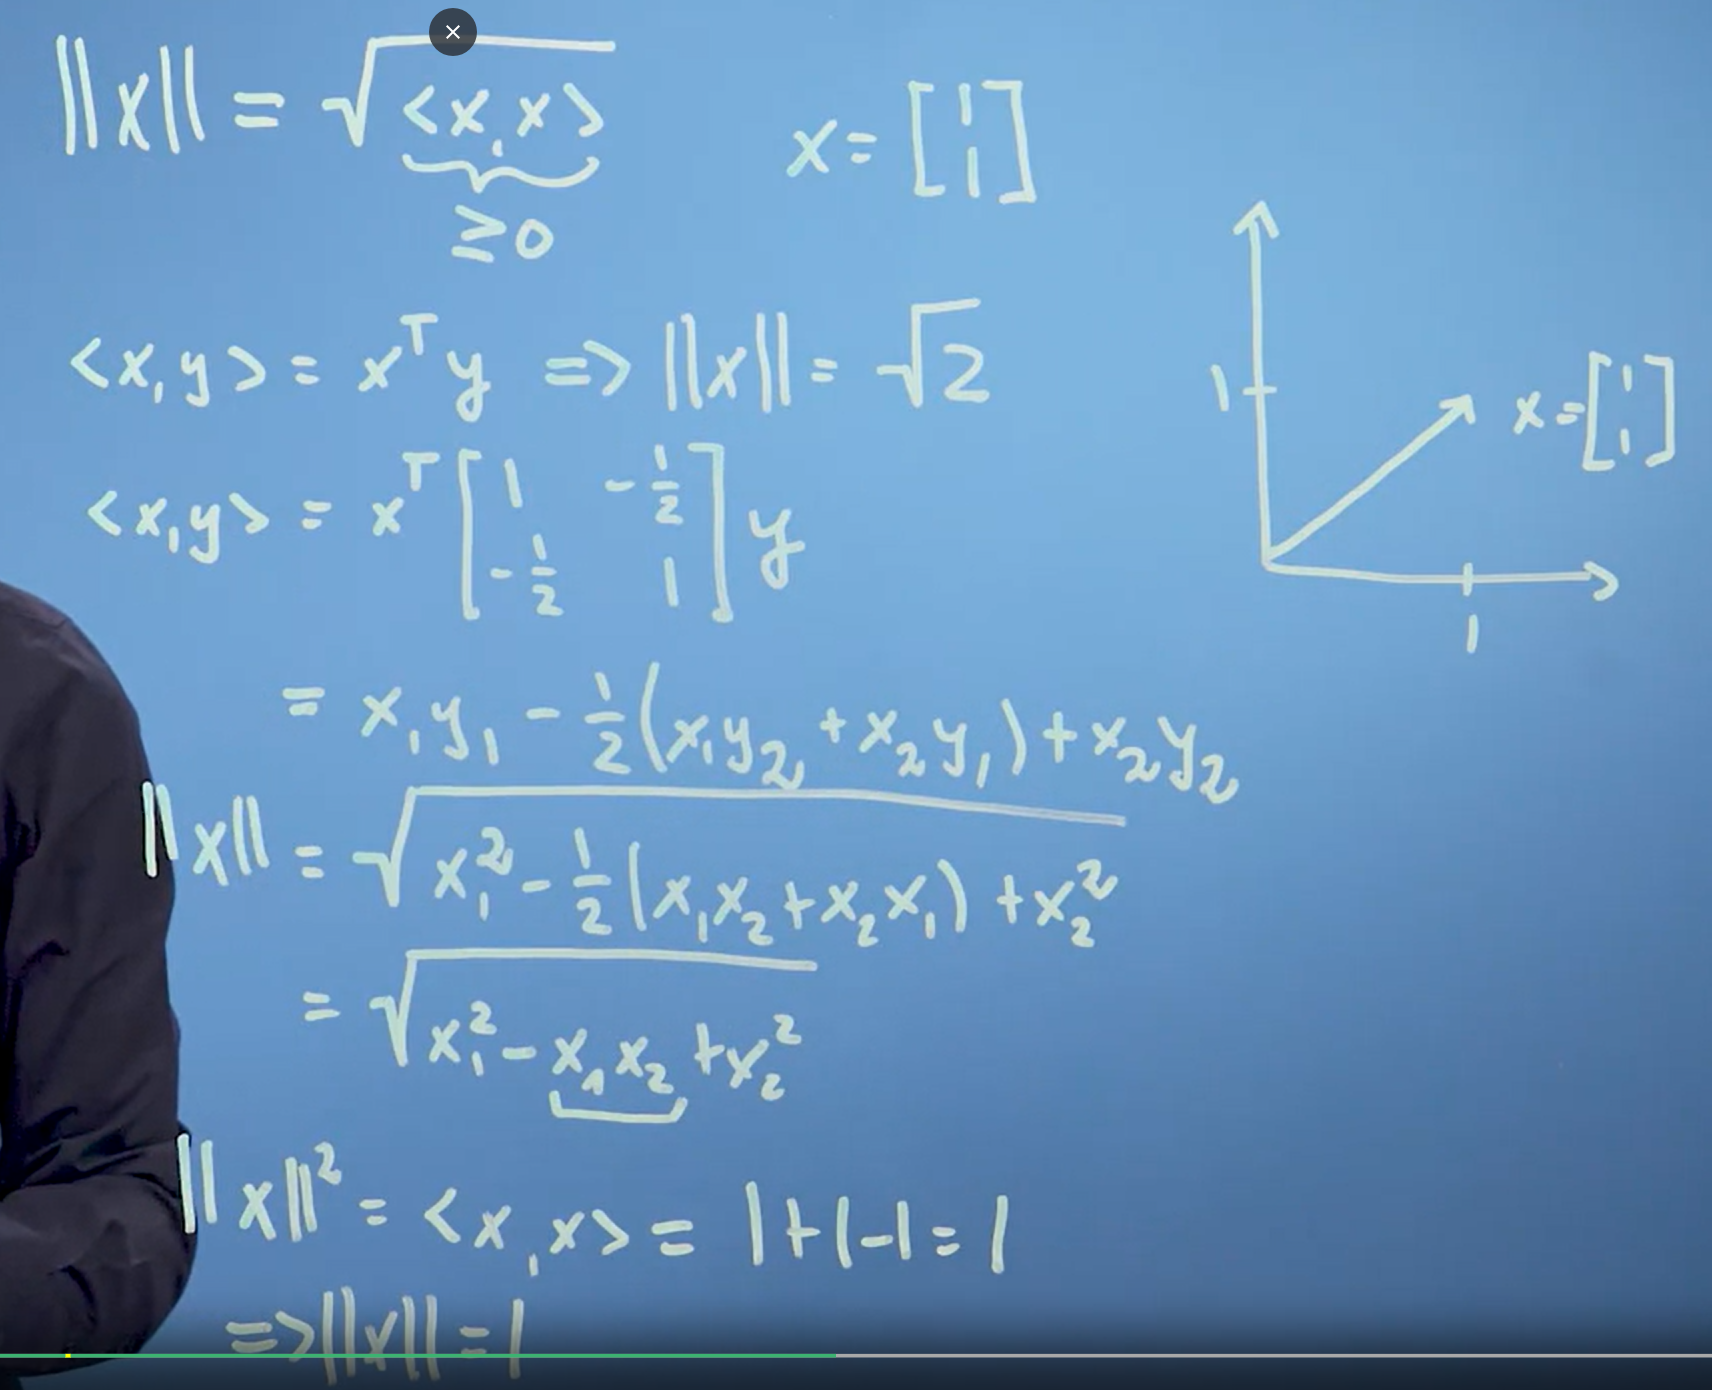 ||x|| = √<x,x>   x = [1 1]
≥0
<x,y> = xᵀy => ||x|| = √2
<x,y> = xᵀ [1 -1/2; -1/2 1] y
= x₁y₁ - 1/2(x₁y₂ + x₂y₁) + x₂y₂
||x|| = √(x₁² - 1/2(x₁x₂ + x₂x₁) + x₂²)
= √(x₁² - x₁x₂ + x₂²)
||x||² = <x,x> = 1+1-1=1
=> ||x|| = 1
1
x = [1 1]
1